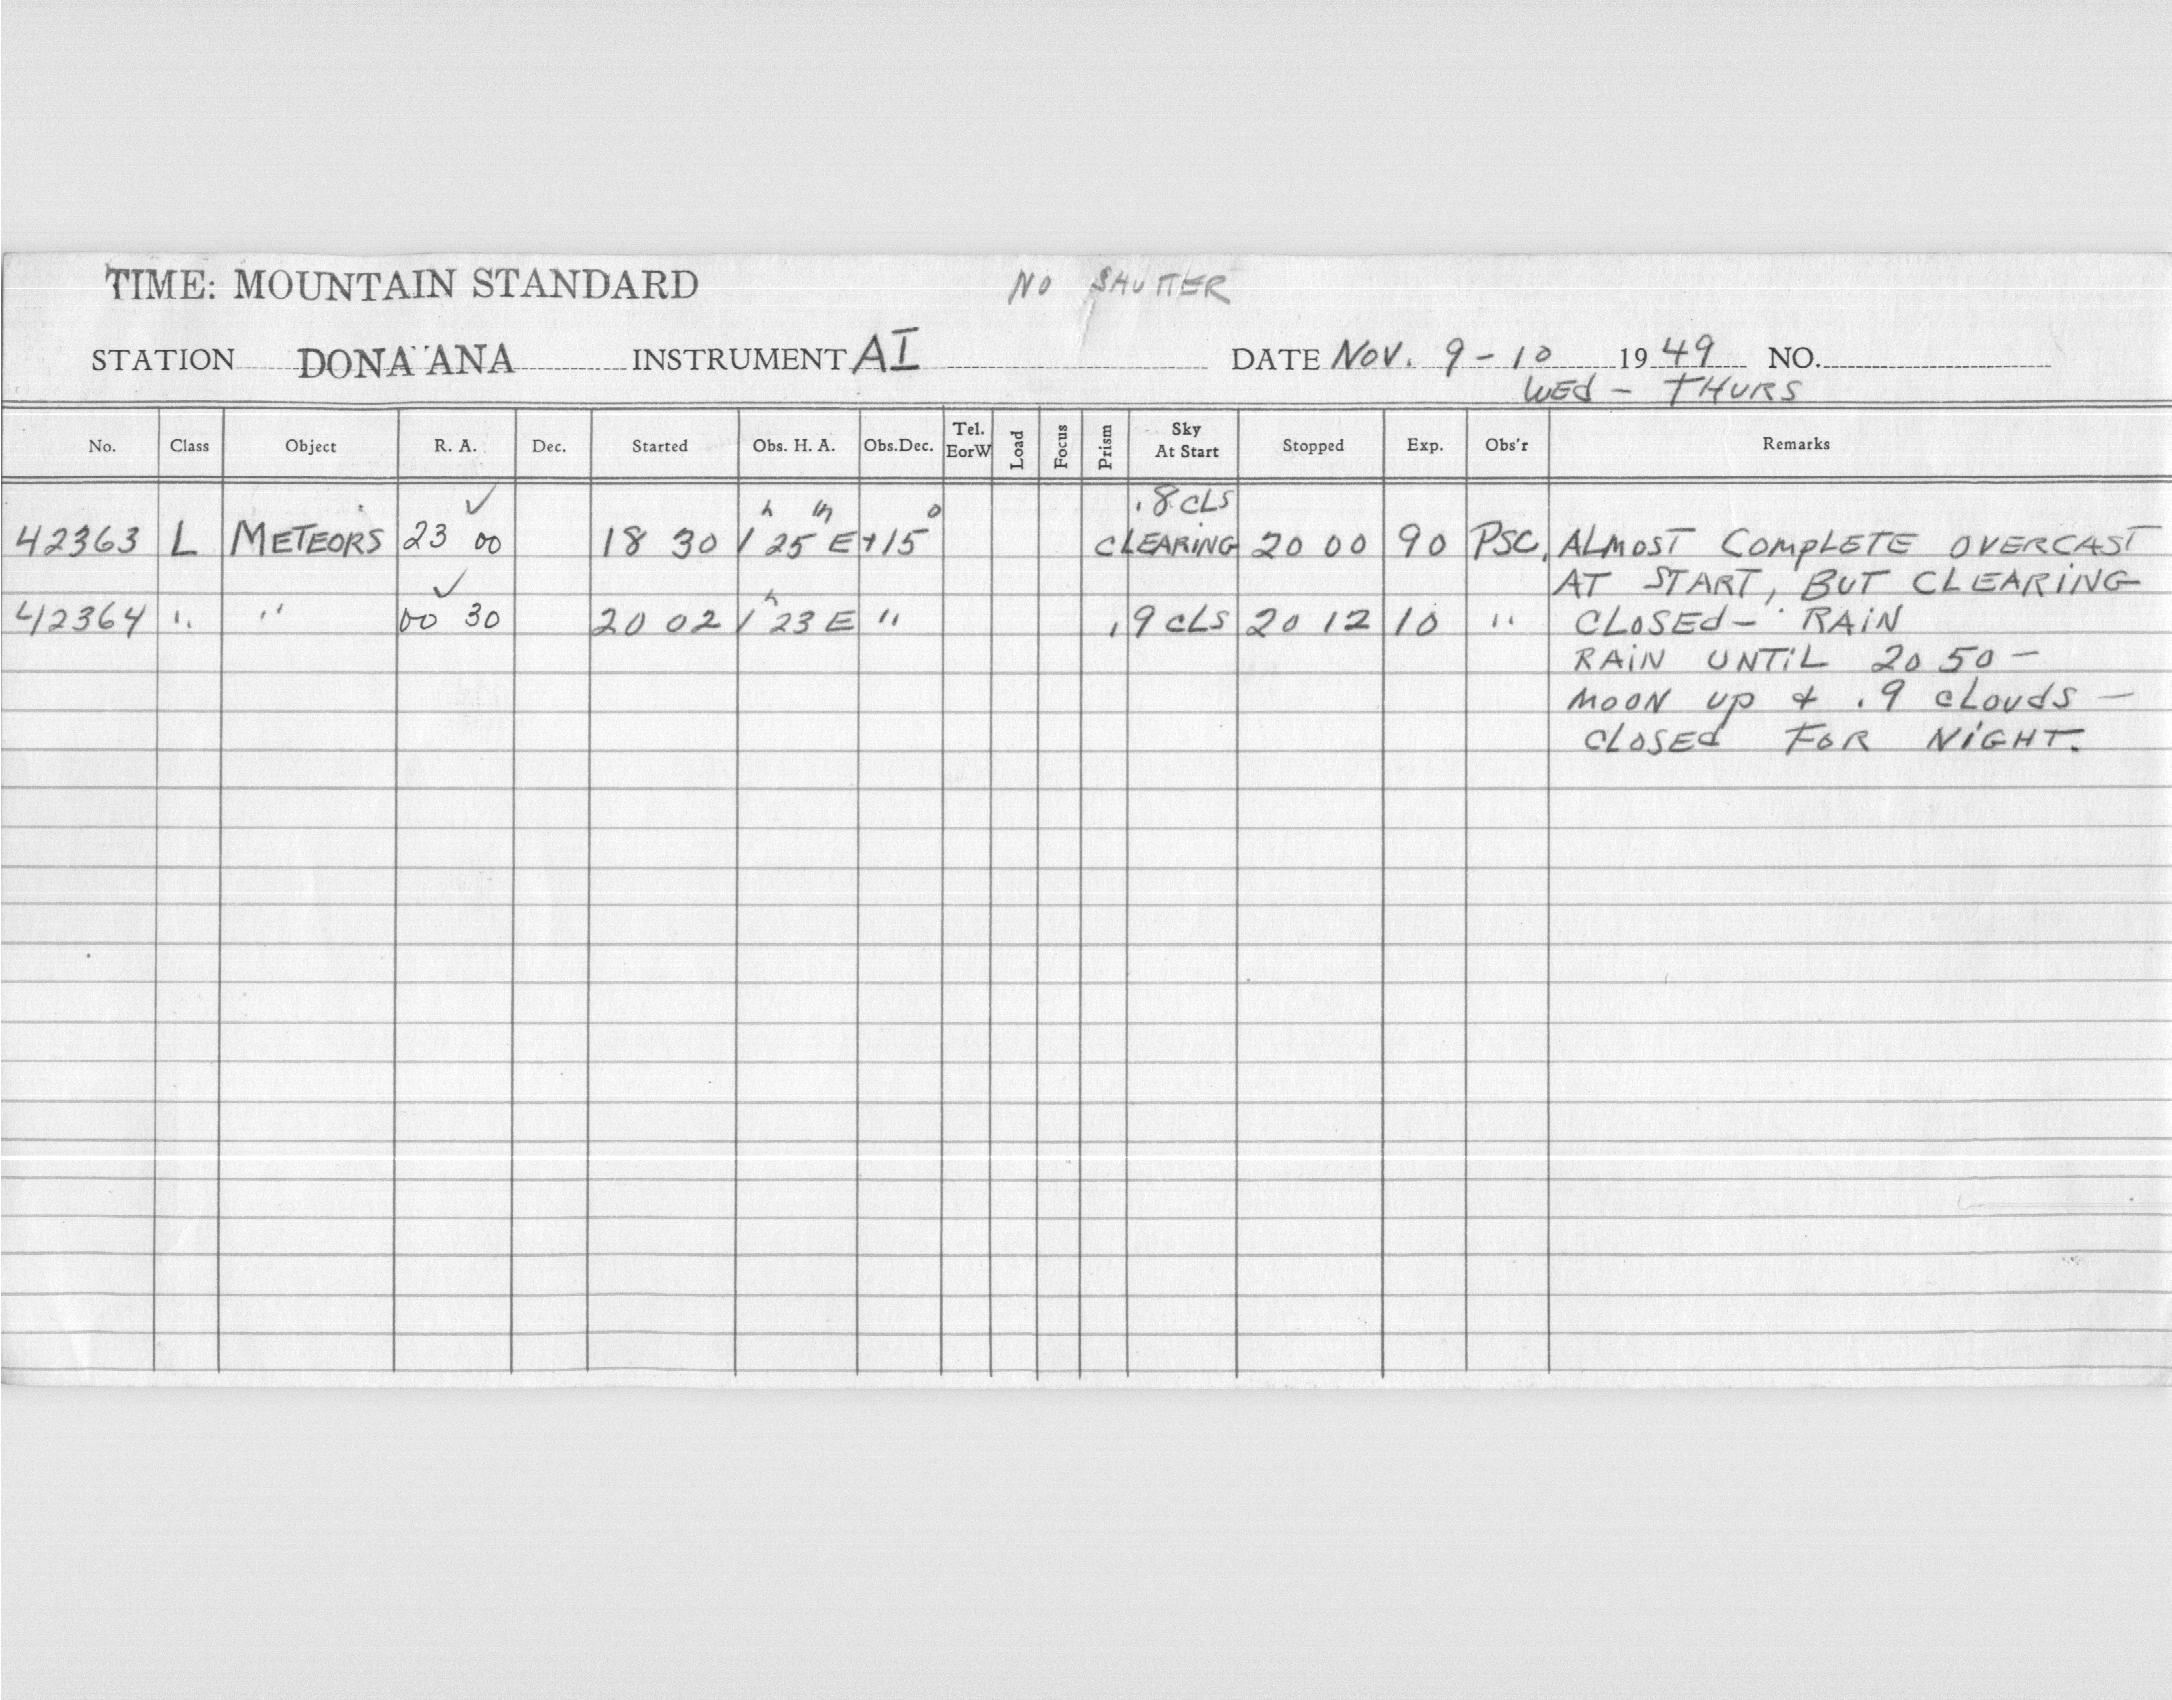 TIME: MOUNTAIN STANDARD NO SHUTTER
STATION DONA ANA INSTRUMENT AI DATE NOV. 9-10 1949 NO.
WEd - THURS
No. Class Object R. A. Dec. Started Obs. H. A. Obs.Dec. Tel. EorW Load Focus Prism Sky At Start Stopped Exp. Obs'r Remarks
✓ .8 CLS
42363 L METEORS 23 00 18 30 1h 25m E +15° CLEARING 20 00 90 PSC. ALMOST COMPLETE OVERCAST
✓ AT START, BUT CLEARING
42364 " " 00 30 20 02 1h 23 E " .9 CLS 20 12 10 " CLOSEd - RAIN
RAIN UNTIL 20 50 -
MOON up & .9 CLOUdS -
CLOSEd FOR NIGHT.